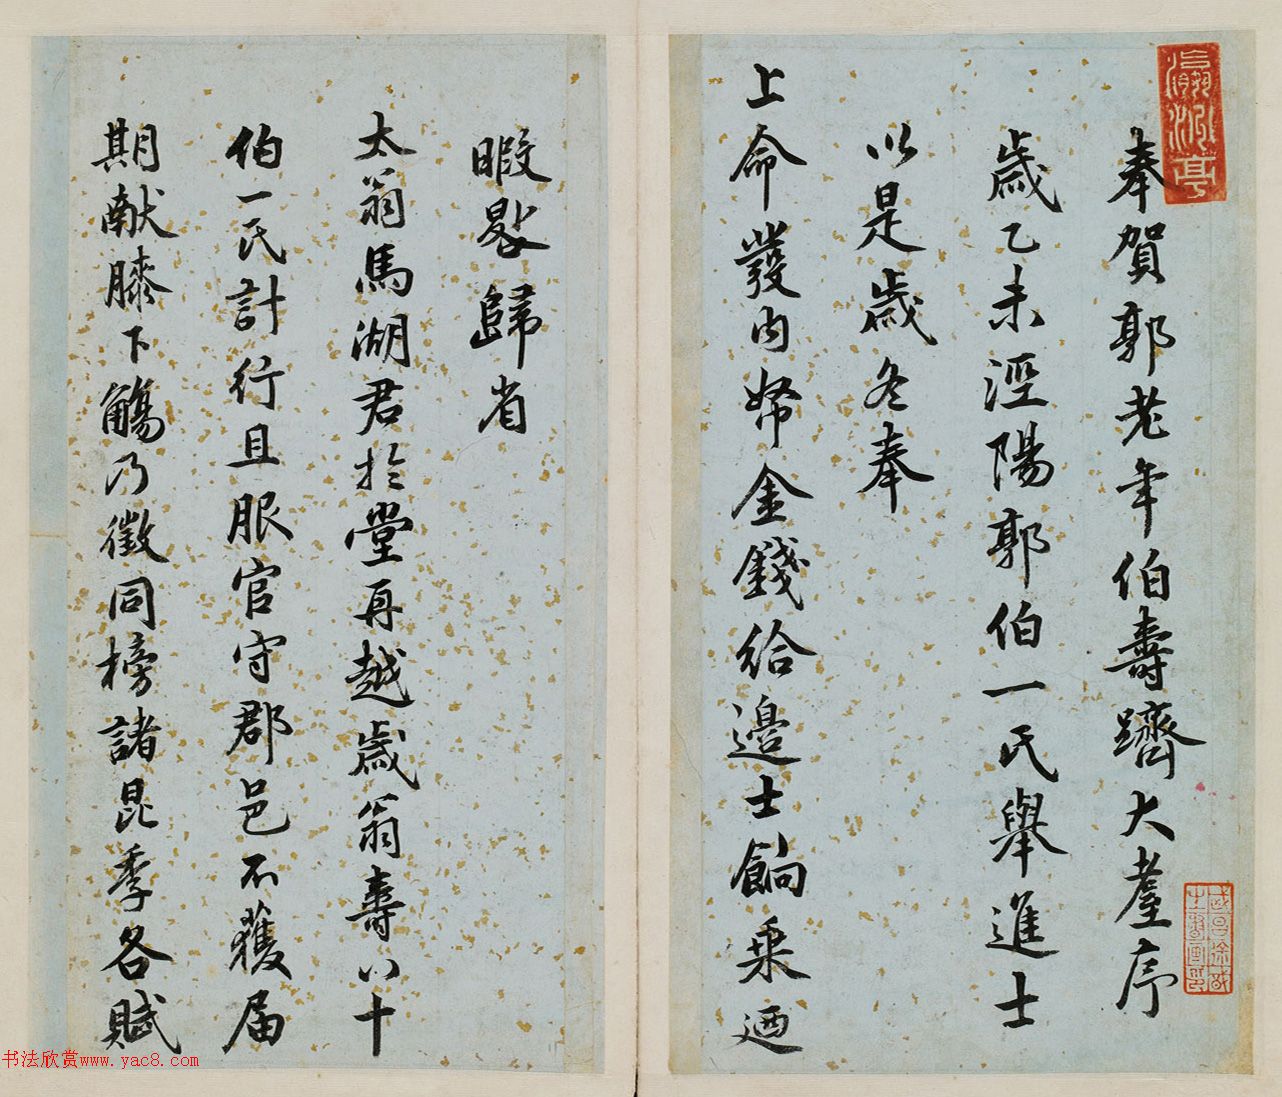 奉賀郭老年伯壽躋大耋序
歲乙未涇陽郭伯一氏舉進士
以是歲冬奉
上命發內帑金錢給邊士餉乘迺
暇歸省
太翁馬湖君於堂再越歲翁壽八十
伯一氏計行且服官守郡邑不獲届
期献膝下觴乃徵同榜諸昆季各賦
书法欣赏www.yac8.com